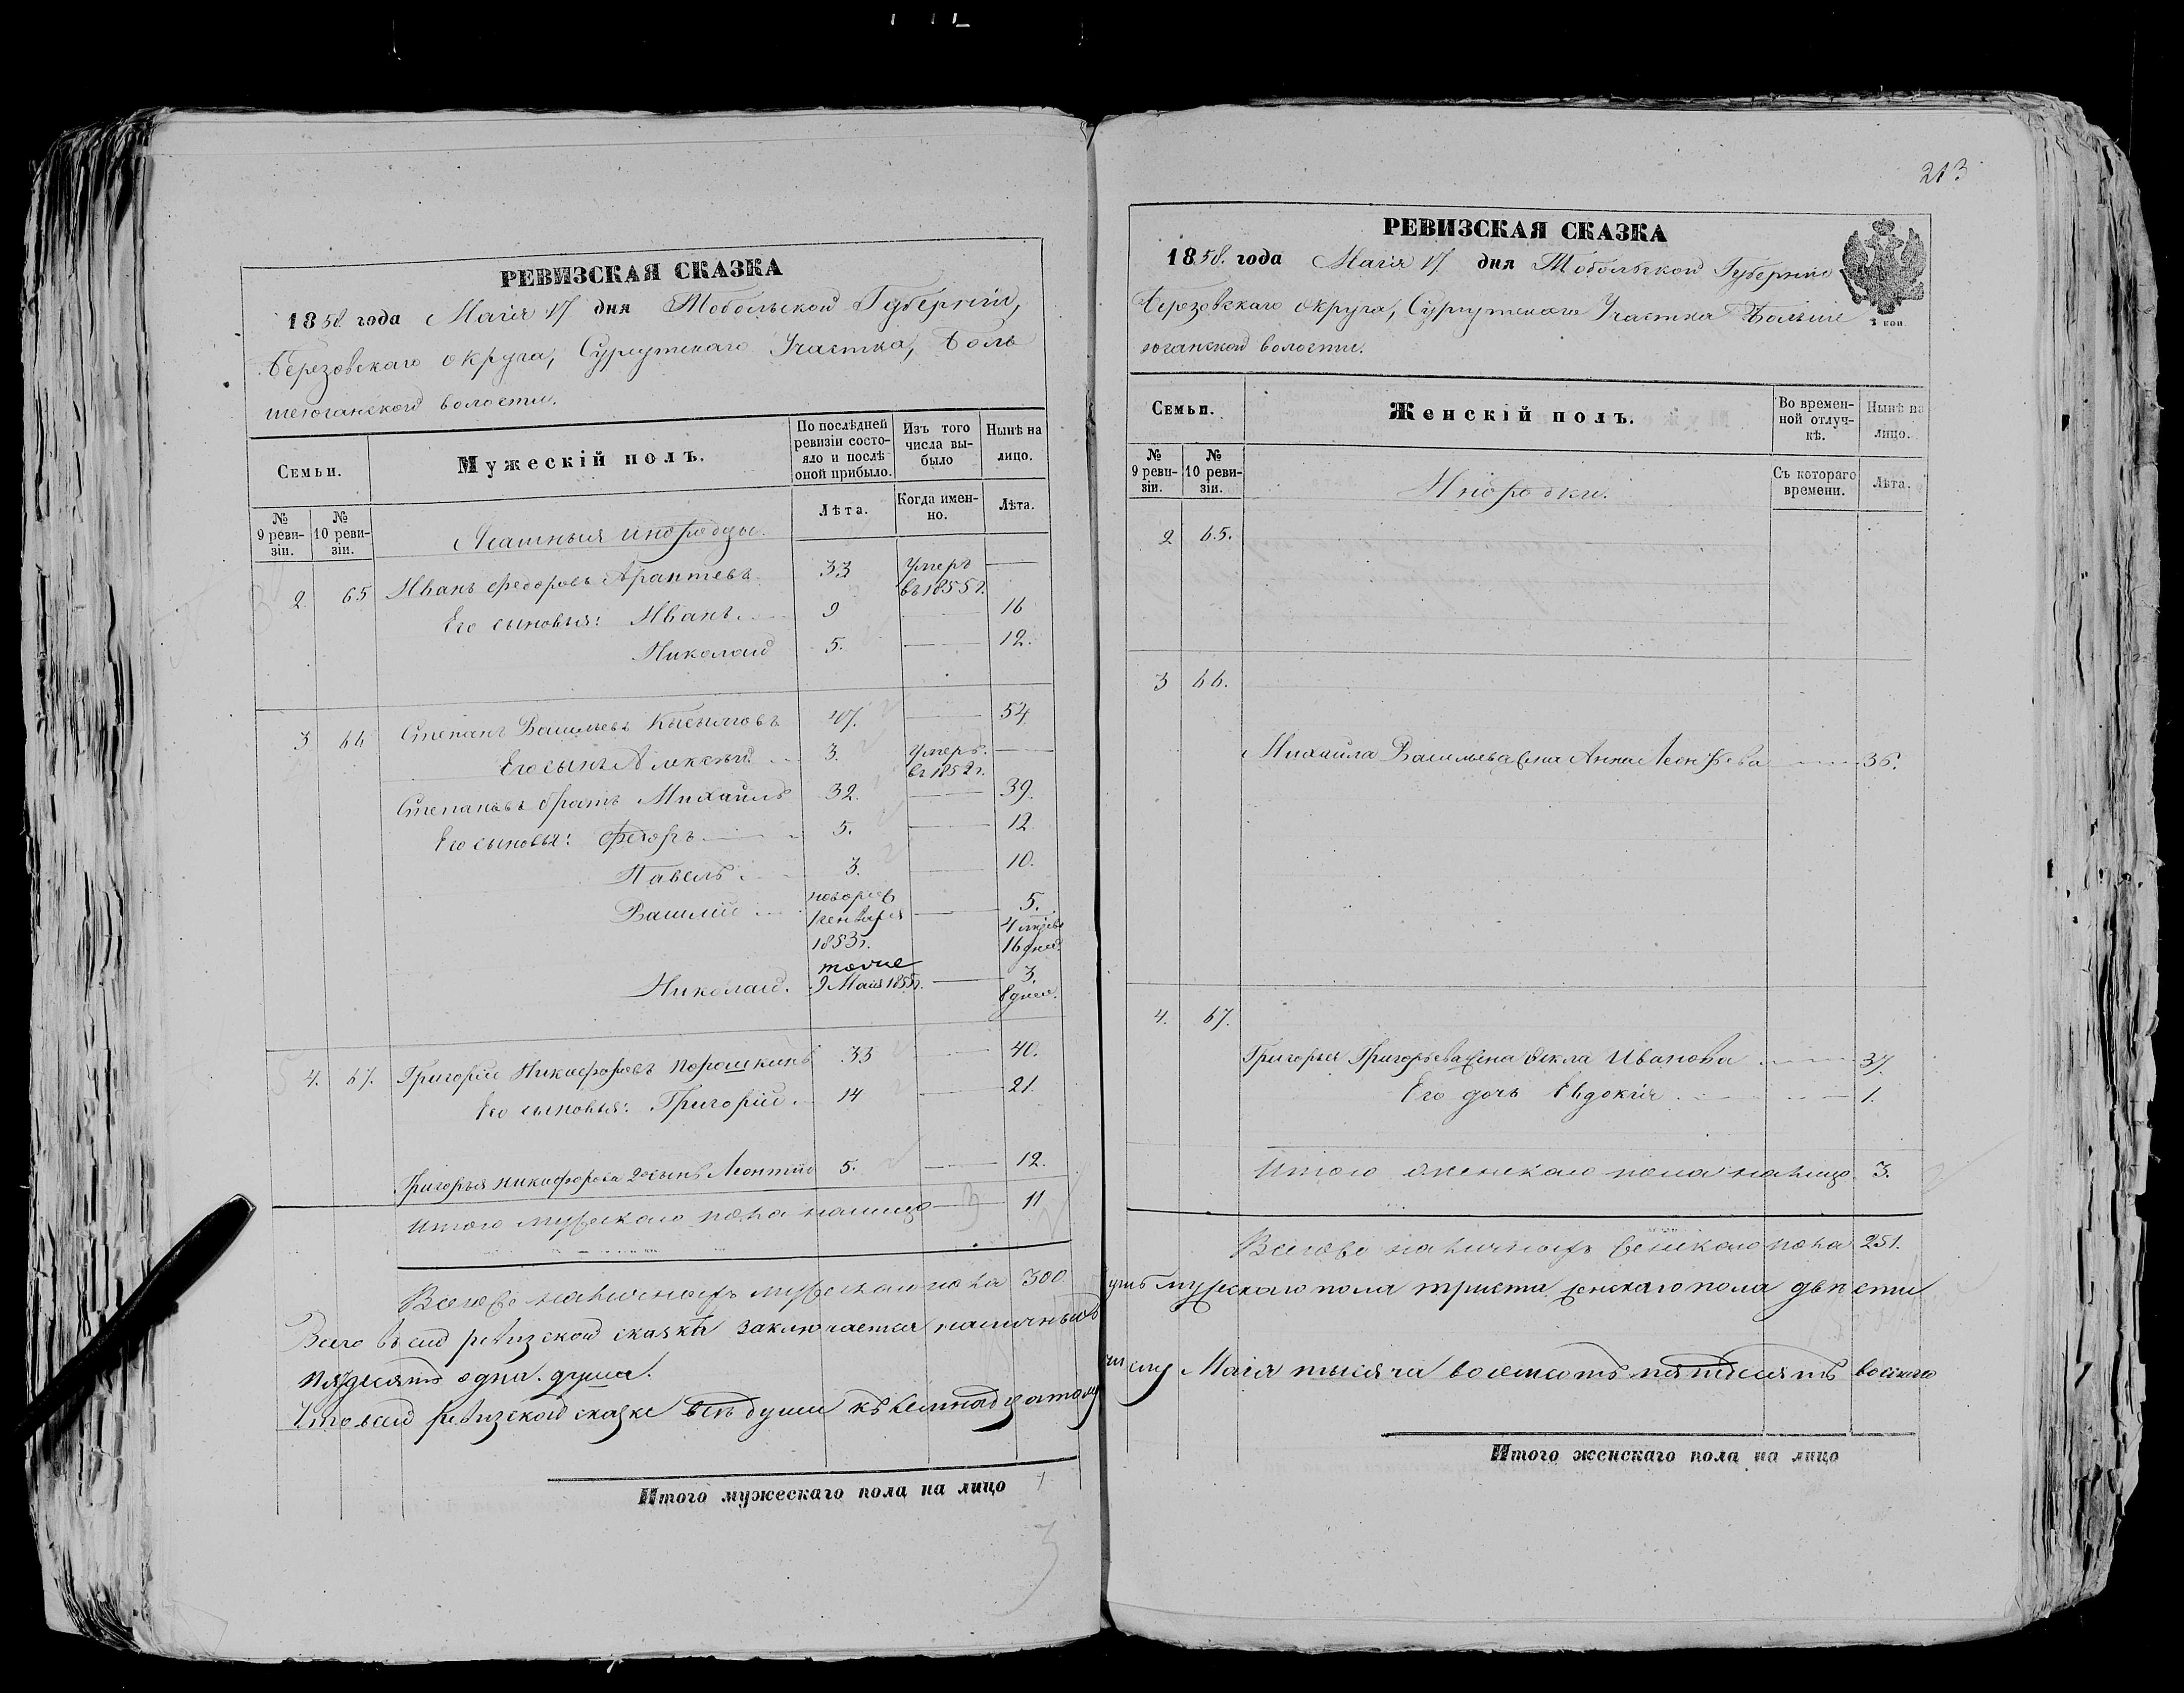 РЕВИЗСКАЯ СКАЗКА
1858 года Маія 17 дня Тобольской Губерніи,
Березовскаго округа, Сургутскаго Участка, Боль
шеюганской волости.
Семьи.
Мужескій полъ.
По послѣдней ревизіи состояло и послѣ оной прибыло.
Изъ того числа выбыло
Нынѣ на лицо.
№ 9 ревизіи.
№ 10 ревизіи.
Ясашныя инородцы.
Лѣта.
Когда именно.
Лѣта.
2. 65 Иванъ Федоровъ 33 Умеръ въ 1855 г. —
Его сыновья: Иванъ 9 — 16
Николай 5. — 12.
3 66 Степанъ Васильевъ 47. — 54
Его сынъ Алексѣй 3. Умеръ. въ 1852 г. —
Степановъ братъ Михайло 32. — 39.
Его сыновья: Федоръ 5. — 12
Павелъ 3. — 10.
Василій новорож 1 генваря 1853 г. — 5. 4 мѣсяц 16 дней
Николай. тоже 9 Маія 1855 г. — 3. 8 дней.
4. 67. Григорій Никифоровъ Порошкинъ 33 — 40.
Его сыновья: Григорій 14 — 21.
Григорья Никифорова 2й сынъ Леонтій 5. — 12.
Итого мужескаго пола на лицо — 11
Всего же наличныхъ мужескаго пола 300.
Всего въ сей ревизской сказкѣ заключается наличныхъ
пядесятъ одна душа.
Что въ сей ревизской сказке всѣ души къ семнадцатому
Итого мужескаго пола на лицо
213
РЕВИЗСКАЯ СКАЗКА
1858. года Маія 17 дня Тобольской Губерніи
Березовскаго округа, Сургутскаго Участка Больше
юганской волости.
Семьи.
Женскій полъ.
Во временной отлучкѣ.
Нынѣ на лицо.
№ 9 ревизіи.
№ 10 ревизіи.
Инородки.
Съ котораго времени.
Лѣта.
2 65.
3 66.
Михайла Васильева жена Анна 36.
4. 67.
Григорья Григорьева жена Фекла Иванова 37.
Его дочь Евдокія 1.
Итого женскаго пола на лицо 3.
Всего же наличныхъ женскаго пола 251.
душъ мужескаго пола триста женскаго пола двѣсти
числу Маія тысяча восемсотъ пятдесятъ восмаго
Итого женскаго пола на лицо